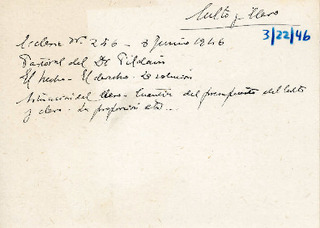 Culto y Clero
3/22/46
Ecclesia Nº. 256 - 8 Junio 1946
Pastoral del Dr Pildain
El hecho - El derecho - La solución
Situación del clero - Cuantía del presupuesto del Culto
y clero - La proporción etc..